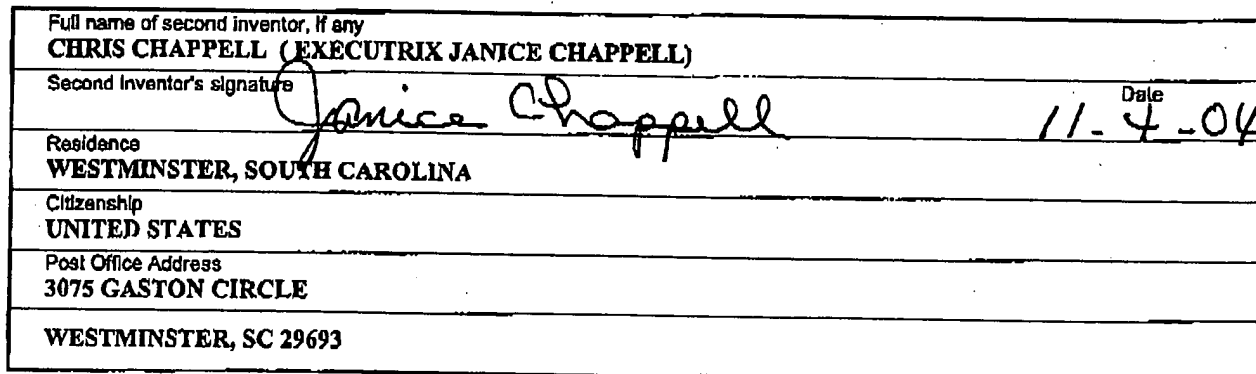 Full name of second inventor, if any
CHRIS CHAPPELL ( EXECUTRIX JANICE CHAPPELL)
Second inventor's signature Janice Chappell Date 11-4-04
Residence
WESTMINSTER, SOUTH CAROLINA
Citizenship
UNITED STATES
Post Office Address
3075 GASTON CIRCLE
WESTMINSTER, SC 29693